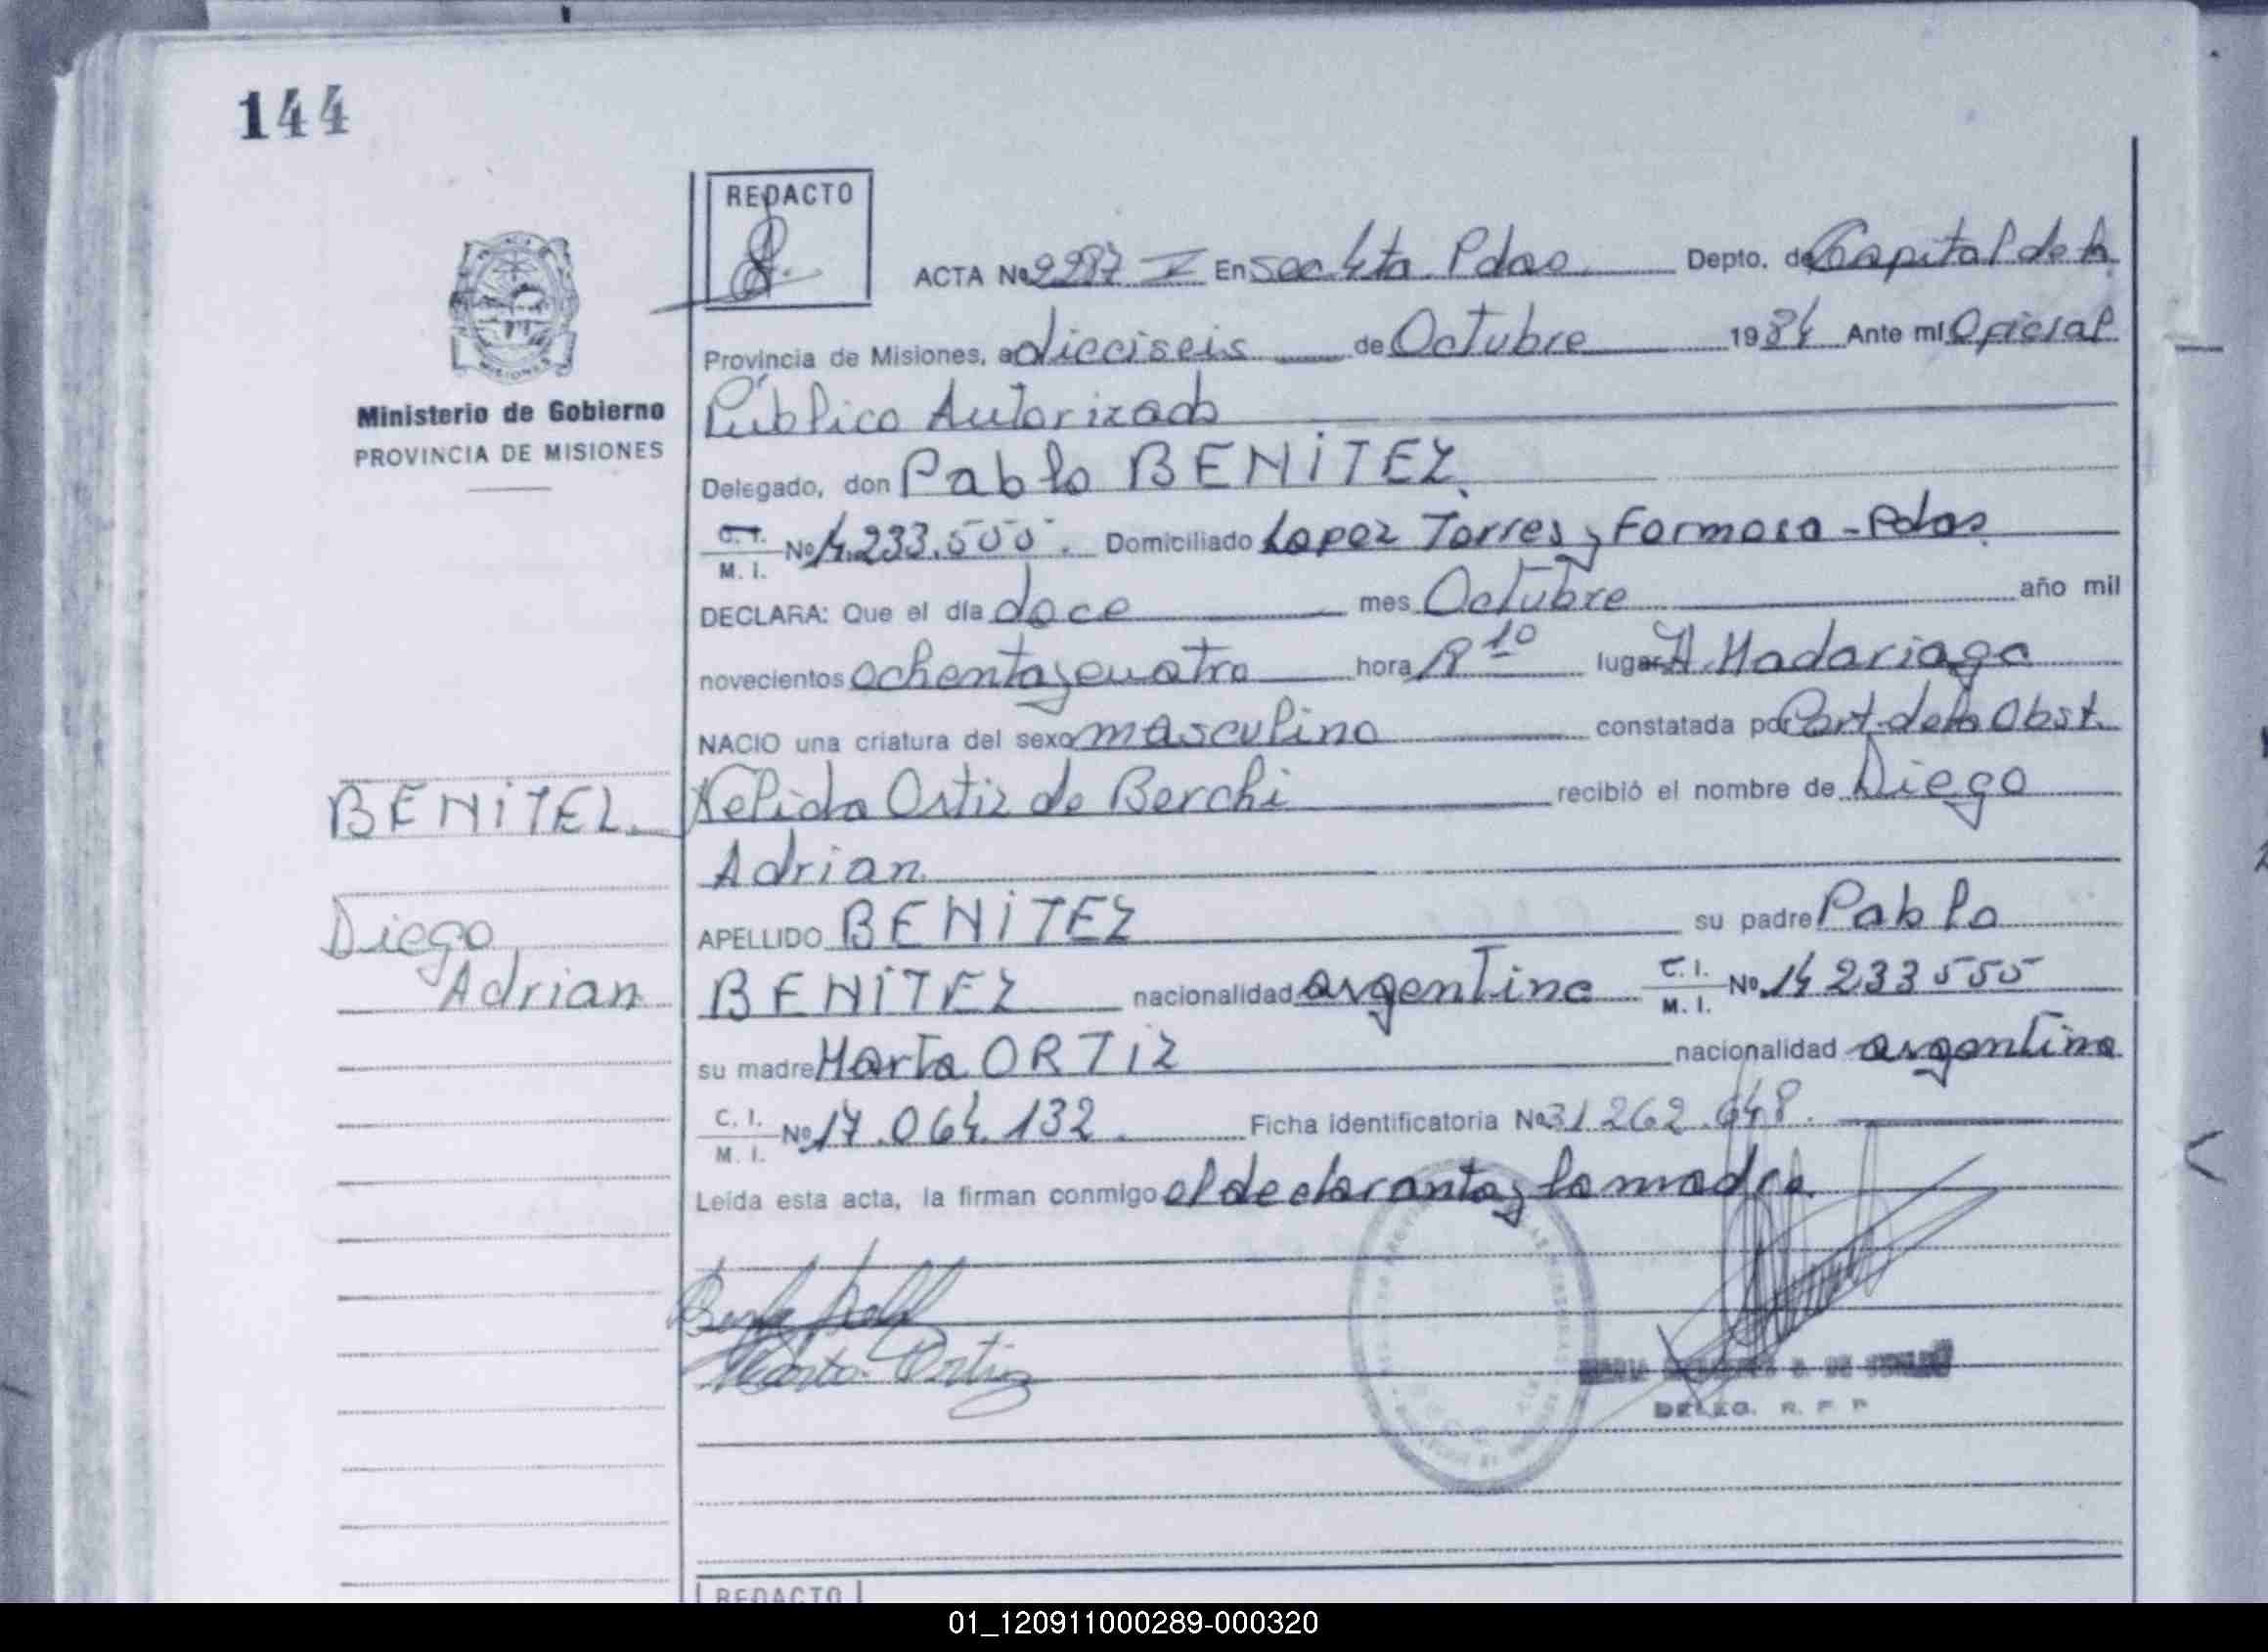 144
REDACTO
ACTA Nº 2287 I En secc 4ta Pdas. Depto. de Capital de la
Provincia de Misiones, a dieciseis de Octubre 1984 Ante mí Oficial
Público Autorizado
Ministerio de Gobierno
PROVINCIA DE MISIONES
Delegado, don Pablo BENITEZ.
C. I. M. I. Nº 14.233.555. Domiciliado Lopez Torres y Formosa - Pdas.
DECLARA: Que el día doce mes Octubre año mil
novecientos ochenta y cuatro hora 8 10 lugar H. Madariaga
NACIO una criatura del sexo masculino constatada por Cert. de la Obst.
Nelida Ortiz de Berchi recibió el nombre de Diego
BENITEZ.
Adrian.
Diego
Adrian
APELLIDO BENITEZ su padre Pablo
BENITEZ nacionalidad argentina C. I. M. I. Nº 14 233 555
su madre Marta ORTIZ nacionalidad argentina
C. I. M. I. Nº 17.064.132. Ficha identificatoria Nº 31.262.648.
Leída esta acta, la firman conmigo el declarante y la madre.
Marta Ortiz
DELEG. R. P. P.
REDACTO
01_120911000289-000320